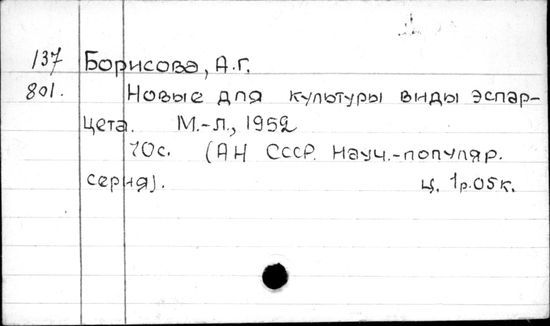 137 Борисова, А.Г.
801. Новые для культуры виды эспар-
цета. М.-Л., 1952
70с. (АН СССР. Науч.-популяр.
серия). ц. 1р.05к.